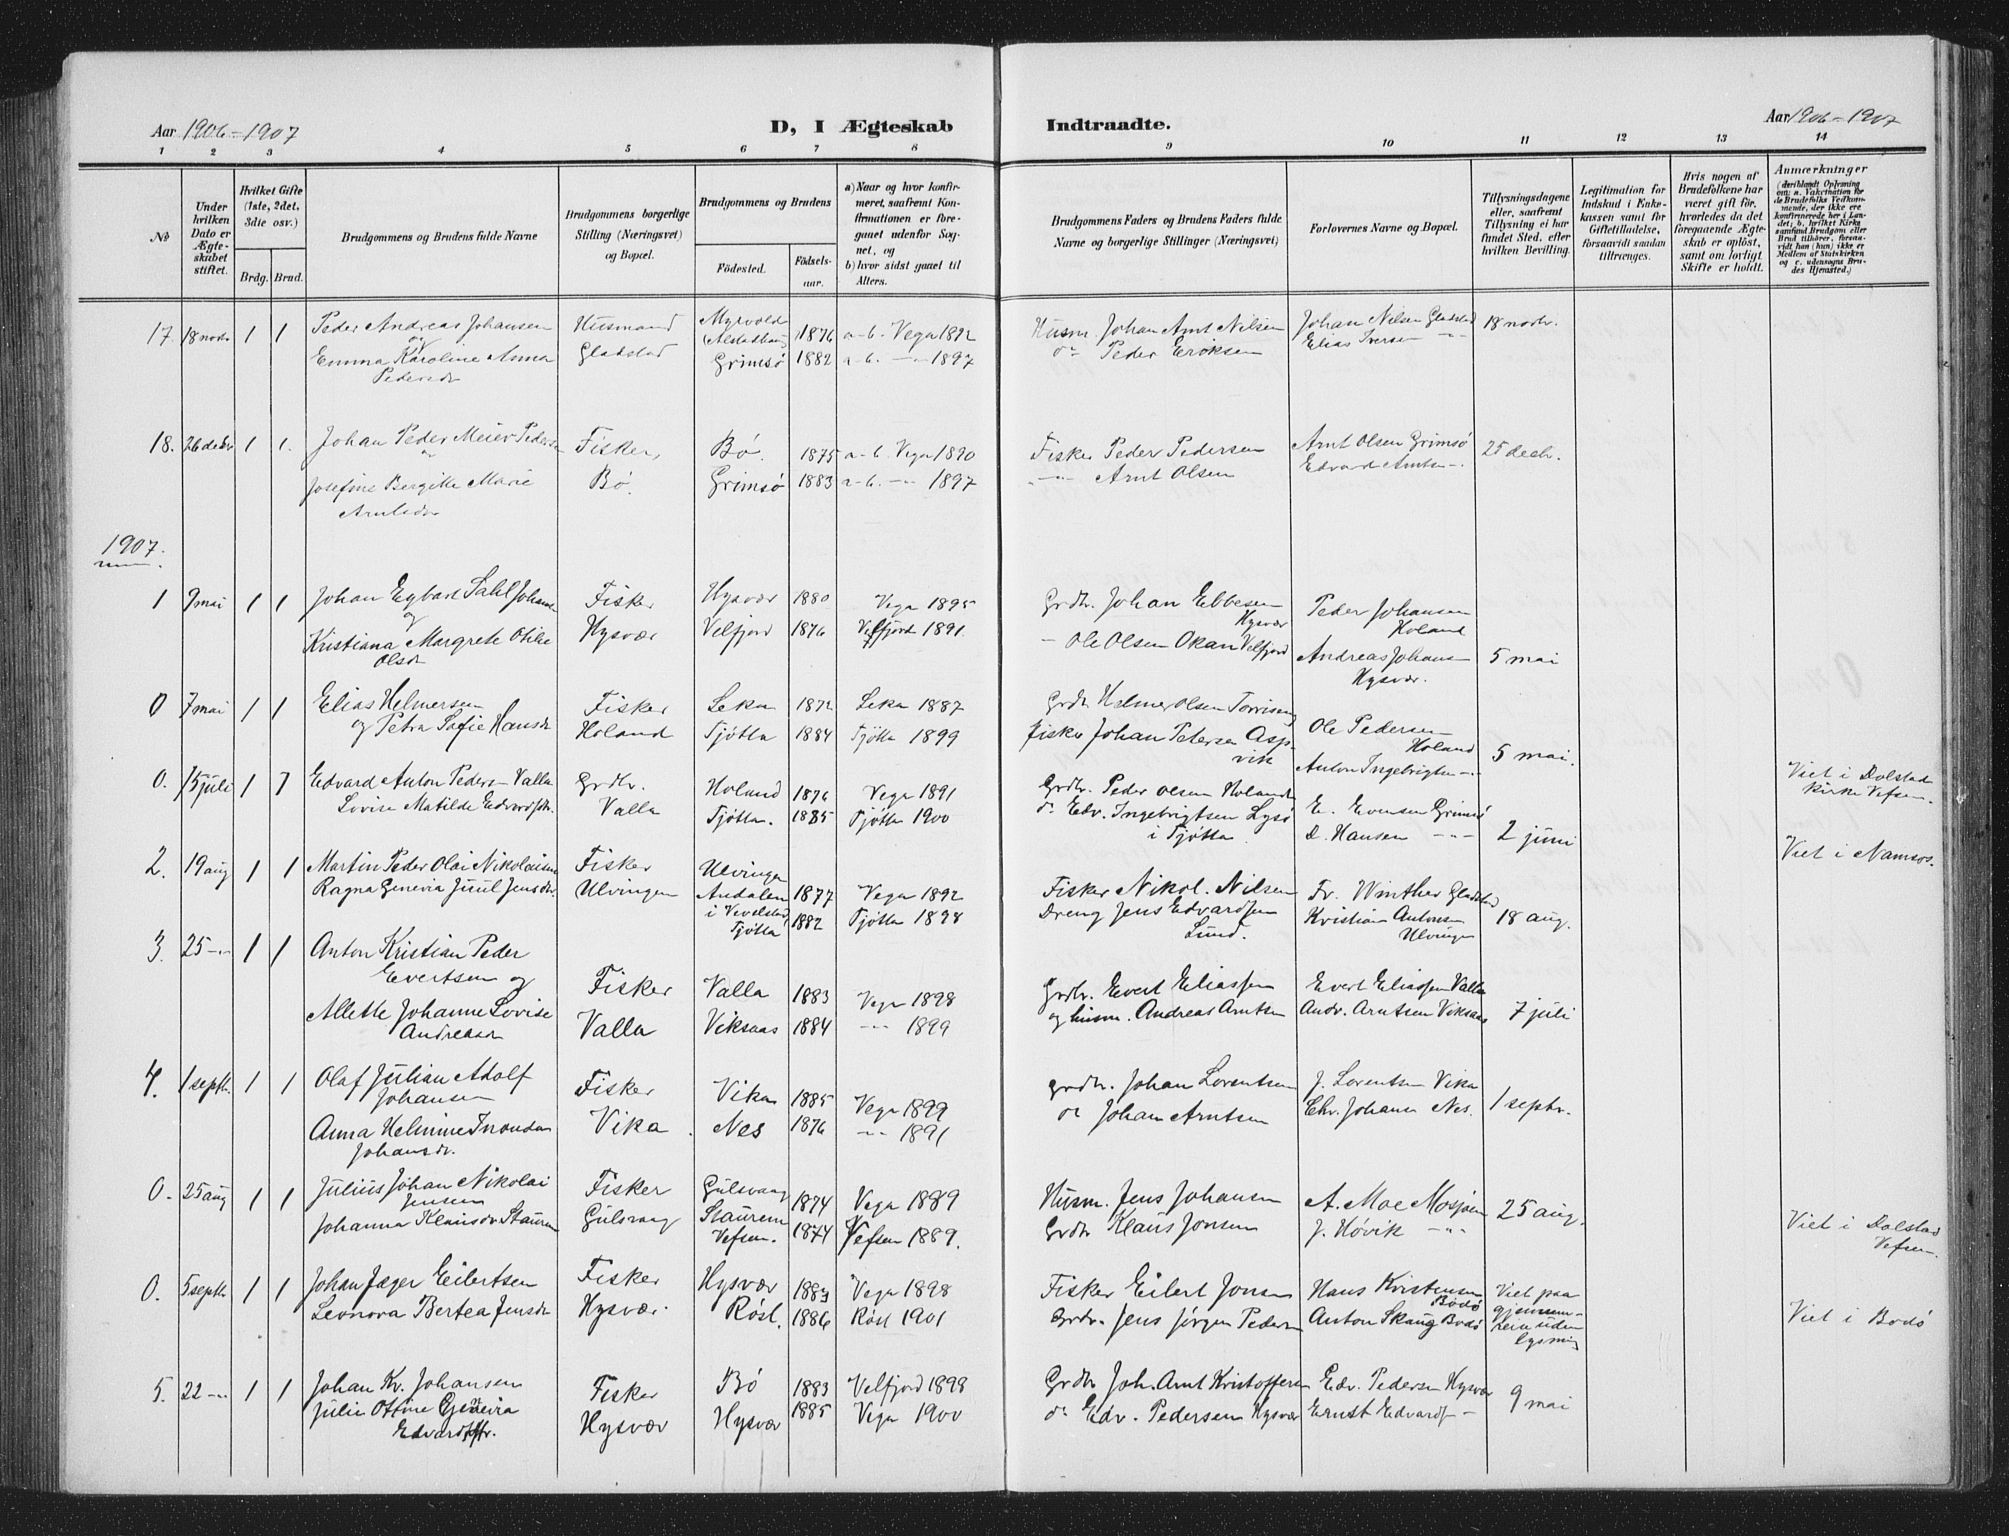 Aar 1906-1907
D, I Ægteskab Indtraadte.
Aar 1906-1907
1 2 3 4 5 6 7 8 9 10 11 12 13 14
No
Under hvilken Dato er Ægteskabet stiftet.
Hvilket Gifte (1ste, 2det, 3die osv.)
Brdg. Brud.
Brudgommens og Brudens fulde Navne
Brudgommens borgerlige Stilling (Næringsvei) og Bopæl.
Brudgommens og Brudens
Födested.
Födselsaar.
a) Naar og hvor konfirmeret, saafremt Konfirmationen er foregaaet udenfor Sognet, og
b) hvor sidst gaaet til Alters.
Brudgommens Faders og Brudens Faders fulde Navne og borgerlige Stillinger (Næringsvei)
Forlovernes Navne og Bopæl.
Tillysningsdagene eller, saafremt Tillysning ei har fundet Sted, efter hvilken Bevilling.
Legitimation for Indskud i Enkekassen samt for Giftetilladelse, forsaavidt saadan tiltrænges.
Hvis nogen af Brudefolkene har været gift för, hvorledes da det foregaaende Ægteskab er oplöst, samt om lovligt Skifte er holdt.
Anmærkninger
(deriblandt Oplysning om: a. Vakcination for de Brudefolks Vedkommende, der ikke ere konfirmerede her i Landet; b. hvilket Kirkesamfund Brudgom eller Brud tilhörer, forsaavidt han (hun) ikke er Medlem af Statskirken og c. udensogns Brudes Hjemsted.)
17. 18 novbr 1 1 Peder Andreas Johansen Husmand Myrvold 1876 a-b. Vega 1892 Husm. Johan Arnt Nilsen Johan Nilsen Gladstad 18 novbr.
og (Alstadhaug)
Emma Karoline Anna Gladstad Grimsø 1882 a-b. -"- 1897 do Peder Eriksen Elias Iversen -"-
Pedersdr
18. 26 decbr 1 1. Johan Peder Meier Pedersen Fisker, Bø. 1875 a-b. Vega 1890 Fisker Peder Pedersen Arnt Olsen Grimsø 25 decbr.
Josefine Bergitte Marie Bø. Grimsø 1883 a-b. -"- 1897 -"- Arnt Olsen Edvard Arntsen -"-
Arntsdr
1907.
1 9 mai 1 1 Johan Egbart Sahl Johansen Fisker Hysvær 1880 Vega 1895 Grdbr. Johan Ebbesen Peder Johansen
og Hysvær Holand
Kristiana Margrete Otilie Hysvær Velfjord 1876 Velfjord 1891. - Ole Olsen Okan Velfjord Andreas Johansen 5 mai
Olsdr Hysvær.
0 7 mai 1 1 Elias Helmersen Fisker Leka 1872 Leka 1887 Grdbr Helmer Olsen
og Petra Sofie Hansdr Holand Tjøtta 1884 Tjøtta 1899 fisker Johan Petersen Aspvik Ole Pedersen Holand 5 mai.
Anton Ingebrigtsen -"-
0. 15 juli 1 1 Edvard Anton Peders- Valla Grdbr. Holand 1876 Vega 1891 Grdbr. Peder Olsen Holand E. Evensen Grimsø Viet i Dolstad kirke Vefsen.
Lovise Matilde Edvardsdtr. Valla Tjøtta. 1885 Tjøtta 1900 do Edv. Ingebrigtsen Lysø i Tjøtta D. Hansen -"- 2 juni
2. 19 aug 1 1 Martin Peder Olai Nikolaisen Fisker Ulvingen 1877 Vega 1892 Fisker Nikol. Nilsen Fr. Winther Gladstad Viet i Namsos.
Ragna Genevia Juul Jensdtr. Ulvingen Andalen i Vevelstad Tjøtta 1882 Tjøtta 1898 Dreng Jens Edvardsen Lund. Kristian Antonsen Ulvingen 18 aug.
3. 25 -"- 1 1 Anton Kristian Peder
Evertsen og Fisker Valla 1883 Vega 1898 Grdbr. Evert Eliassen Evert Eliassen Valla
Allette Johanne Lovise Valla Viksaas 1884 -"- 1899 og husm. Andreas Arntsen Andr. Arntsen Viksaas 7 juli
Andreasdr
4. 1 septbr. 1 1 Olaf Julian Adolf Fisker Vika 1885 Vega 1899 grdbr. Johan Lorentsen J. Lorentsen Vika 1 septbr.
Johansen
Anna Helmine Johansdr. Vika. Nes 1876 -"- 1891 do Johan Arntsen Chr. Johans Nes.
0. 25 aug 1 1 Julius Johan Nikolai Fisker Gulsvaag 1874 Vega 1889 Husm. Jens Johansen A. Moe Mosjøen 25 aug.
Jensen
Johanna Klausdr Stauren Gulsvaag Stauren Vefsen. 1874 Vefsen 1889. Grdbr Klaus Jonsen J. Høvik -"- Viet i Dolstad Vefsen.
0. 5 septbr 1 1 Johan Jæger Eilertsen Fisker Hysvær 1883 Vega 1898 Fisker Eilert Jonsen Hans Kristensen Bodø Viet paa
Leonora Bertea Jensdr Hysvær. Røst. 1886 Røst 1901 Grdbr. Jens Jørgen Peders Anton Skaug Bodø uden lysning Viet i Bodø
5. 22 -"- 1 1 Johan Kr. Johansen Fisker Bø 1883 Velfjord 1898 Grdbr Joh. Arnt Kristoffersen Edv. Pedersen Hysvær 9 mai
Julie Ottine Genevia Hysvær Hysvær 1885 Vega 1900 do Edv. Pedersen Hysvær Ernst Edvards -
Edvardsdtr.